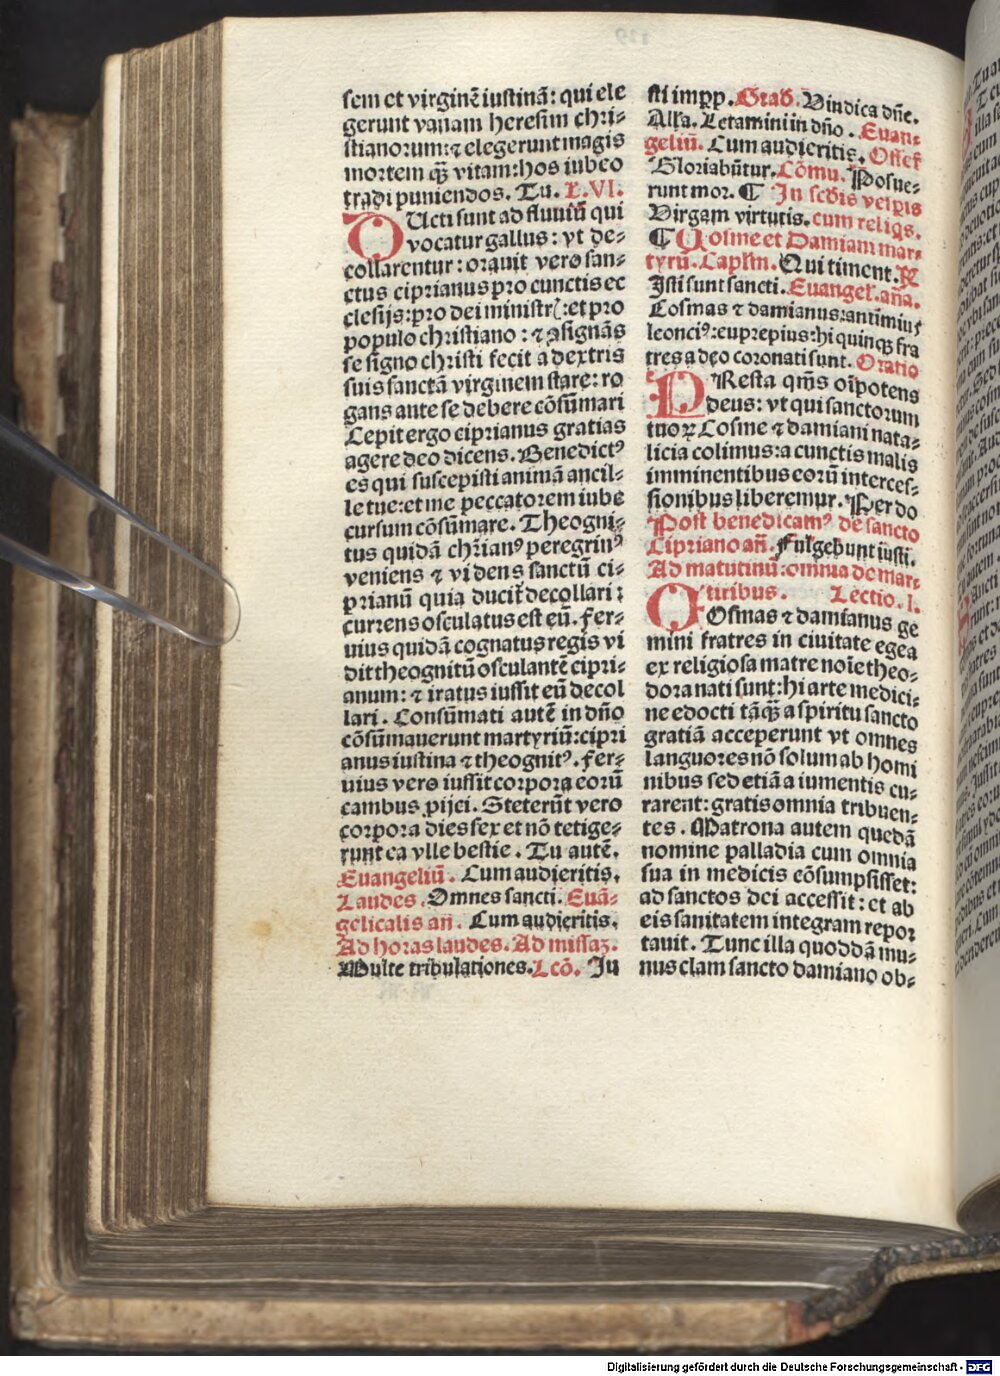 sem et virginē iustinā: qui ele
gerunt vanam heresim chri-
stianorum: ⁊ elegerunt magis
mortem qƷ vitam: hos iubeo
tradi puniendos. Tu. L. VI.
DUcti sunt ad fluuiū qui
vocatur gallus: vt de-
collarentur: orauit vero san-
ctus ciprianus pro cunctis ec
clesijs: pro dei ministr: et pro
populo christiano: ⁊ ꝯsignās
se signo christi fecit a dextris
suis sanctā virginem stare: ro
gans ante se debere cōsūmari
Cepit ergo ciprianus gratias
agere deo dicens. Benedictꝰ
es qui suscepisti animā ancil-
le tue: et me peccatorem iube
cursum cōsūmare. Theogni-
tus quidā chrianꝰ peregrinꝰ
veniens ⁊ videns sanctū ci-
prianū quia ducit decollari:
currens osculatus est eū. Fer-
uius quidā cognatus regis vi
dit theognitū osculantē cipri-
anum: ⁊ iratus iussit eū decol
lari. Consūmati autē in dño
cōsūmauerunt martyriū: cipri
anus iustina ⁊ theognitꝰ. Fer-
uius vero iussit corpora eorū
canibus ꝓijci. Steterūt vero
corpora dies sex et nō tetige-
runt ea vlle bestie. Tu autē.
Euangeliū. Cum audieritis.
Laudes. Omnes sancti. Euā-
gelicalis añ. Cum audieritis.
Ad horas laudes. Ad missaƷ.
Multe tribulationes. Lcō. Ju
sti impp. Grad. Vindica dñe.
Alla. Letamini in dño. Euan-
geliū. Cum audieritis. Offert
Gloriabūtur. Cōmu. Posue-
runt mor. ¶ In scdis vespis
Virgam virtutis. cum reliqs.
¶ Cosme et Damiani mar-
tyrū. Caplm. Qui timent. ℞
Isti sunt sancti. Euangel. aña.
Cosmas ⁊ damianus: antimius
leonciꝰ: euprepius: hi quinqƷ fra
tres a deo coronati sunt. Oratio
PResta qms oīpotens
deus: vt qui sanctorum
tuoꝝ Cosme ⁊ damiani nata-
licia colimus: a cunctis malis
imminentibus eorū interces-
sionibus liberemur. Per do
Post benedicamꝰ de sancto
Cipriano añ. Fulgebunt iusti.
Ad matutinū: omnia de mar-
tiribus. Lectio. I.
COsmas ⁊ damianus ge
mini fratres in ciuitate egea
ex religiosa matre noīe theo-
dora nati sunt: hi arte medici-
ne edocti tāqƷ a spiritu sancto
gratiā acceperunt vt omnes
languores nō solum ab homi
nibus sed etiā a iumentis cu-
rarent: gratis omnia tribuen-
tes. Matrona autem quedā
nomine palladia cum omnia
sua in medicis cōsumpsisset:
ad sanctos dei accessit: et ab
eis sanitatem integram repor
tauit. Tunc illa quoddā mu-
nus clam sancto damiano ob-
Digitalisierung gefördert durch die Deutsche Forschungsgemeinschaft - DFG